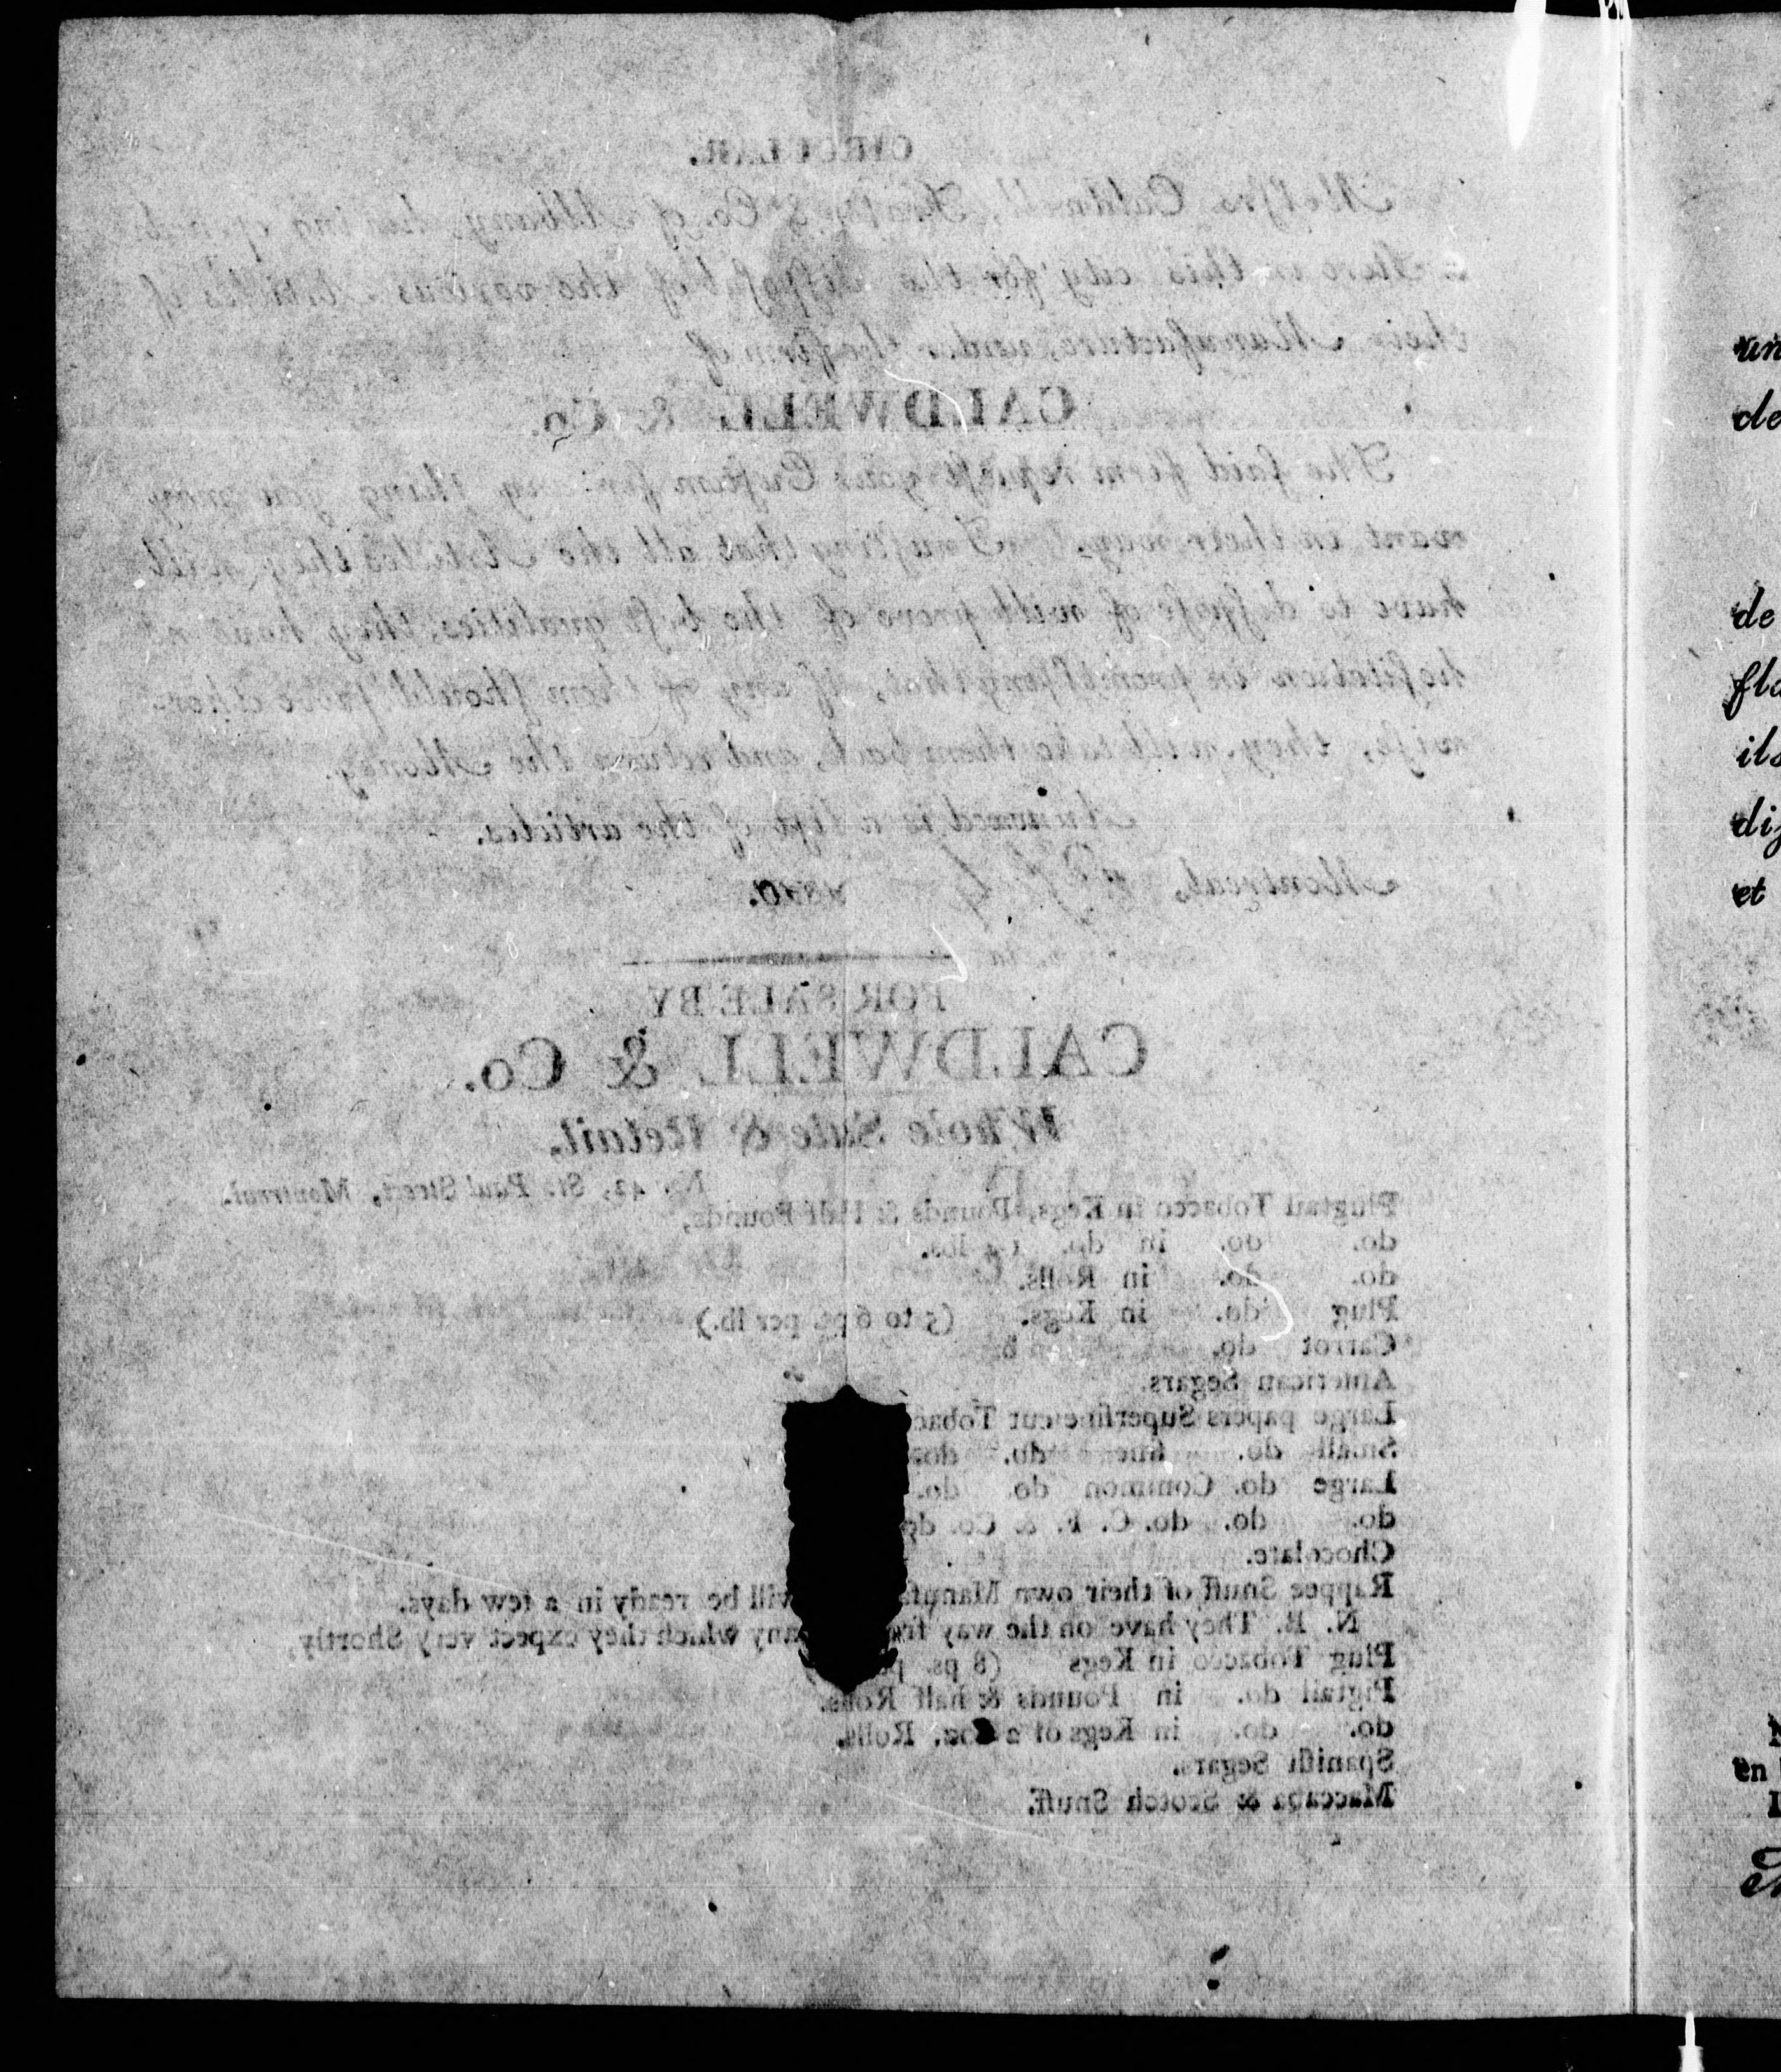 CIRCULAR.
Messrs. Caldwell, & Co. of Albany, having opened
a Store in this city for the disposal of the various Articles of
their Manufacture, under the firm of
CALDWELL & Co.
The ſaid firm requeſt your Cuſtom for any thing you may
want in their way. Truſting that all the Articles they will
have to diſpoſe of will prove of the beſt qualities, they have no
heſitation in promiſing that, if any of them ſhould prove other-
wiſe, they will take them back, and return the Money.
Annexed is a liſt of the articles.
Montreal,
FOR SALE BY
CALDWELL & Co.
Whole Sale & Retail.
No. 42, St. Paul Street, Montreal.
Plugtail Tobacco in Kegs, Pounds & Half Pounds,
do. do. in do. lbs.
do. do. in Rolls.
Plug do. in Kegs. (5 to 6 ps. per lb.)
Carrot do.
American Segars.
Large papers Superfine cut Tobac
Small do. fine do. do.
Large do. Common do. do.
do. do. do. C. F. & Co. do
Chocolate.
Rappee Snuff of their own Manufa will be ready in a few days.
N. B. They have on the way fr any which they expect very Shortly,
Plug Tobacco in Kegs (8 ps. p
Pigtail do. in Pounds & half Rolls.
do. do. in Kegs of 2 Rolls.
Spaniſh Segars.
Maccaba & Scotch Snuff.
un
de
de
fla
ils
diſ
et
en